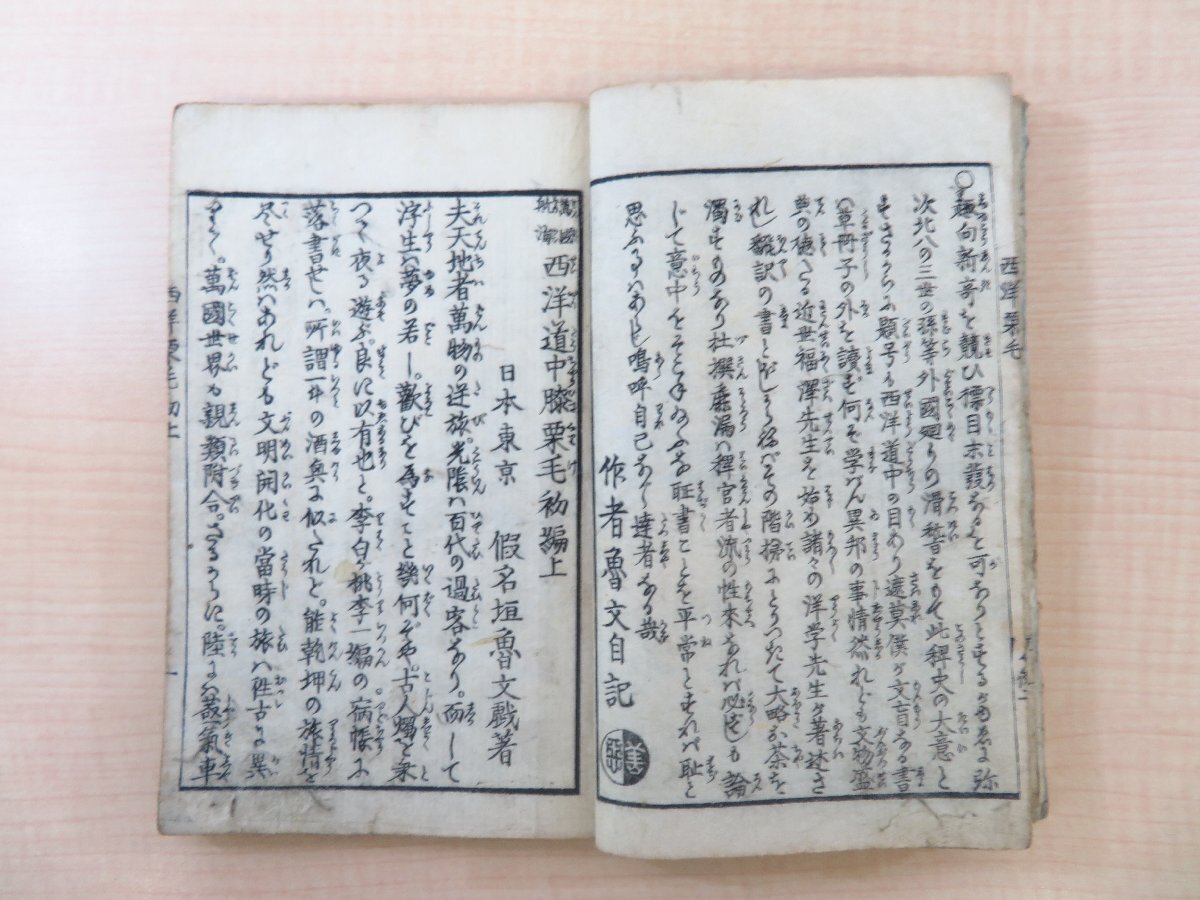 西洋栗毛
○趣向新奇を競ひ標目末護なるを可なりとするゆゑに弥
次北八の三世の孫等外國廻りの滑稽をもて此稗史の大意と
すさるからに題号も西洋道中の目あり遮莫僕ヶ文盲なる書
ハ草冊子の外を讀ず何そ学バん異邦の事情然れども文物盛
興の徳たる近世福澤先生を始め諸々の洋学先生ヶ著述さ
れし翻訳の書とぼしからねバその階梯にとりつたて大略お茶を
濁すものなり杜撰麁漏ハ稗官者流の性来なれバ必ずしも論
じて意中をそこねのふな耻書ことを平常とすれバ耻と
思ふるハなし嗚呼自己ながら達者なる哉
作者魯文自記
萬國航海 西洋道中膝栗毛初編上
日本東京 假名垣魯文戲著
夫天地者萬物の逆旅。光陰ハ百代の過客なり。而して
浮生ハ夢の若し。歡びを爲すこと幾何ぞや。古人燭を秉
つて夜る遊ぶ。良に以有也と。李白ヶ桃李一編の。病帳に
落書せバ。所謂一斗の酒興に似たれど。能乾坤の旅情を
尽せり然ハあれども文明開化の當時の旅ハ徃古に異
りて。萬國世界も親類附合。さるからに。陸にハ蒸氣車
西洋栗毛初上